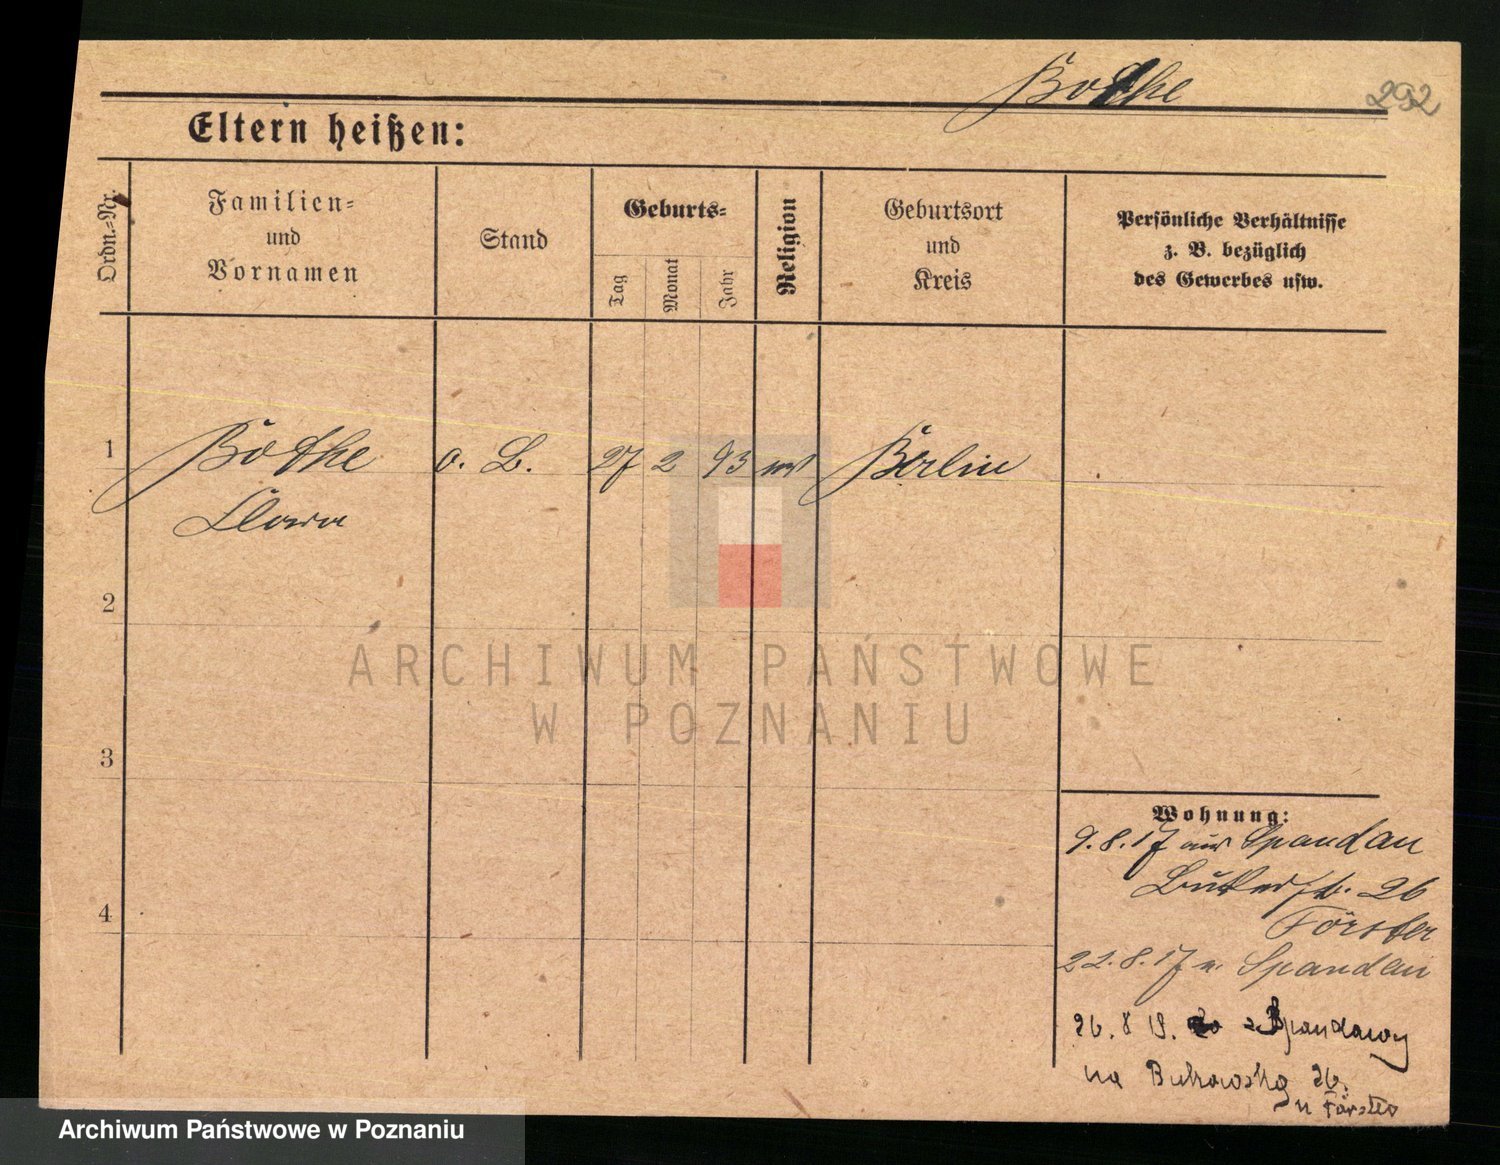 Bothe 292
Eltern heißen:
Ordn.-Nr.
Familien-
und
Vornamen
Stand
Geburts-
Tag
Monat
Jahr
Religion
Geburtsort
und
Kreis
Persönliche Verhältnisse
z. B. bezüglich
des Gewerbes usw.
1 Bothe o. B. 27 2 93 Berlin
Clara
2
3
4
Wohnung:
9.8.17 aus Spandau
26
Förster
22.8.17 n. Spandau
26. 8 19. z Spandawy
na Bukowską 26.
u Förster
ARCHIWUM PAŃSTWOWE
W POZNANIU
Archiwum Państwowe w Poznaniu